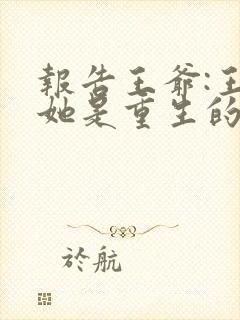 報告王爺:王
她是重生的
於航